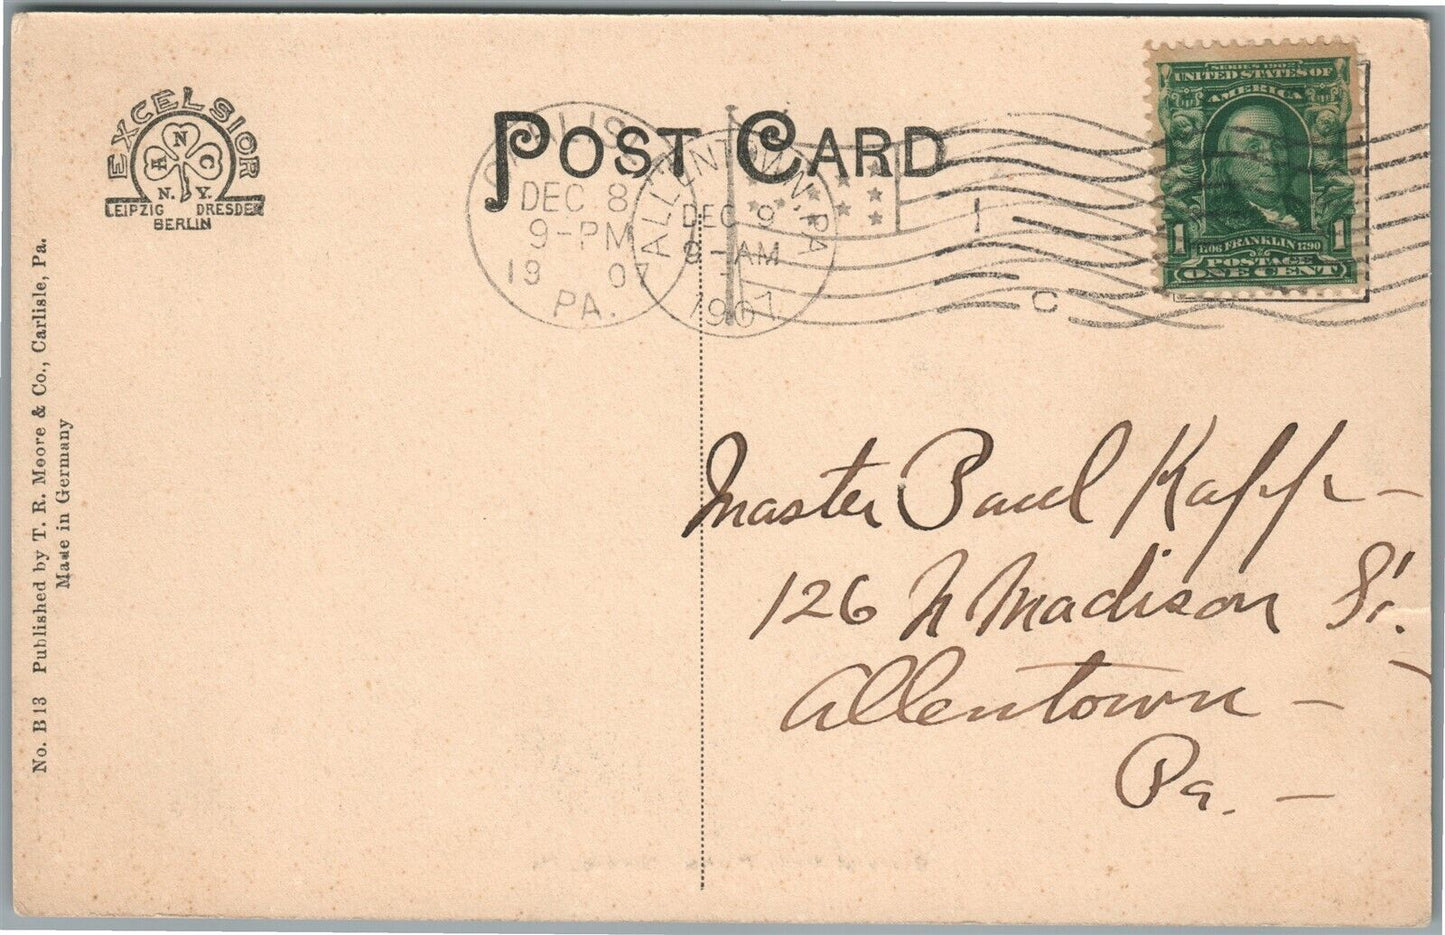 EXCELSIOR
A N C
N. Y.
LEIPZIG DRESDEN
BERLIN
POST CARD
DEC 8
9-PM
19 07
PA.
ALLENTOWN, PA
DEC 9
8-AM
1907
1
C
SERIES 1902
UNITED STATES OF
AMERICA
1706 FRANKLIN 1790
1 POSTAGE 1
ONE CENT
No. B 13 Published by T. R. Moore & Co., Carlisle, Pa.
Made in Germany
Master Paul Kapp -
126 N Madison St.
Allentown -
Pa. -